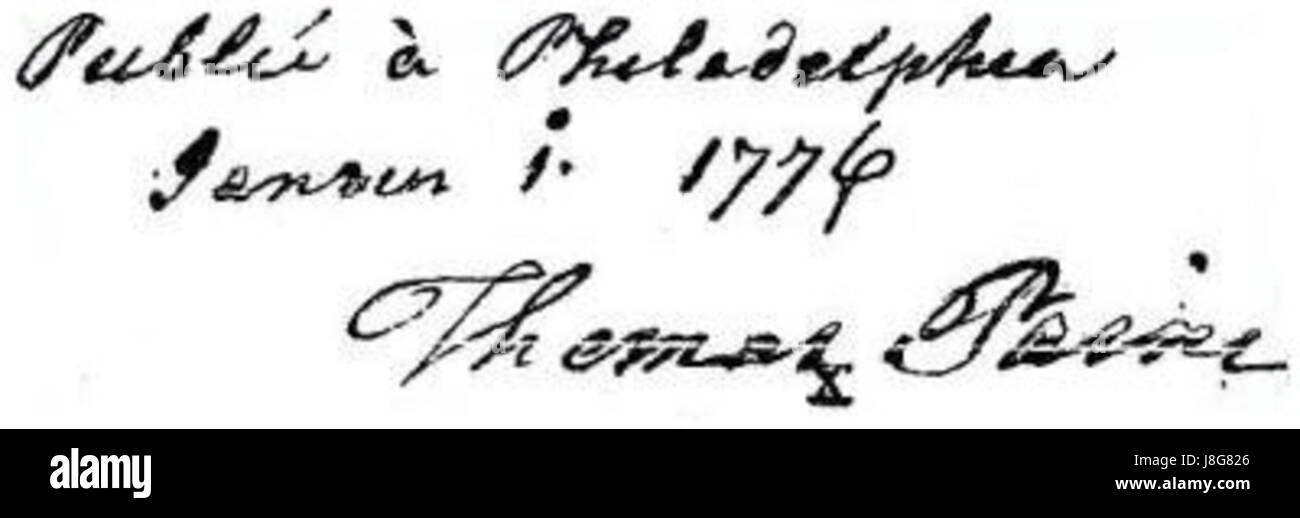 Publié à Philadelphia
i. 1776
Thomas Paine
X
alamy
Image ID: J8G826
www.alamy.com